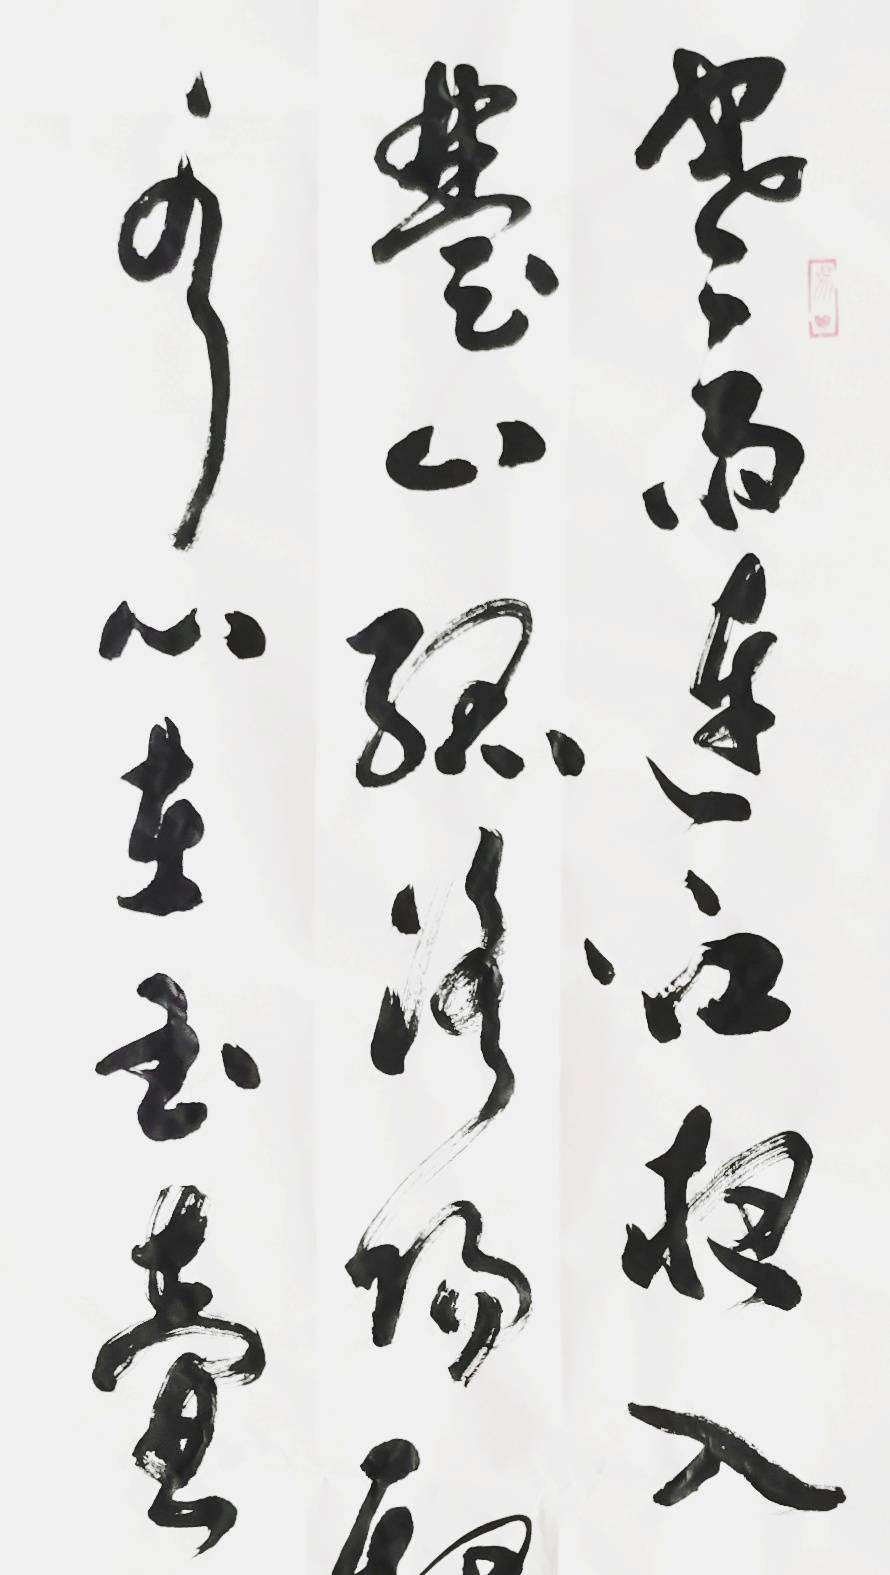 寒雨連江夜入
楚山孤洛陽
冰心在玉壺